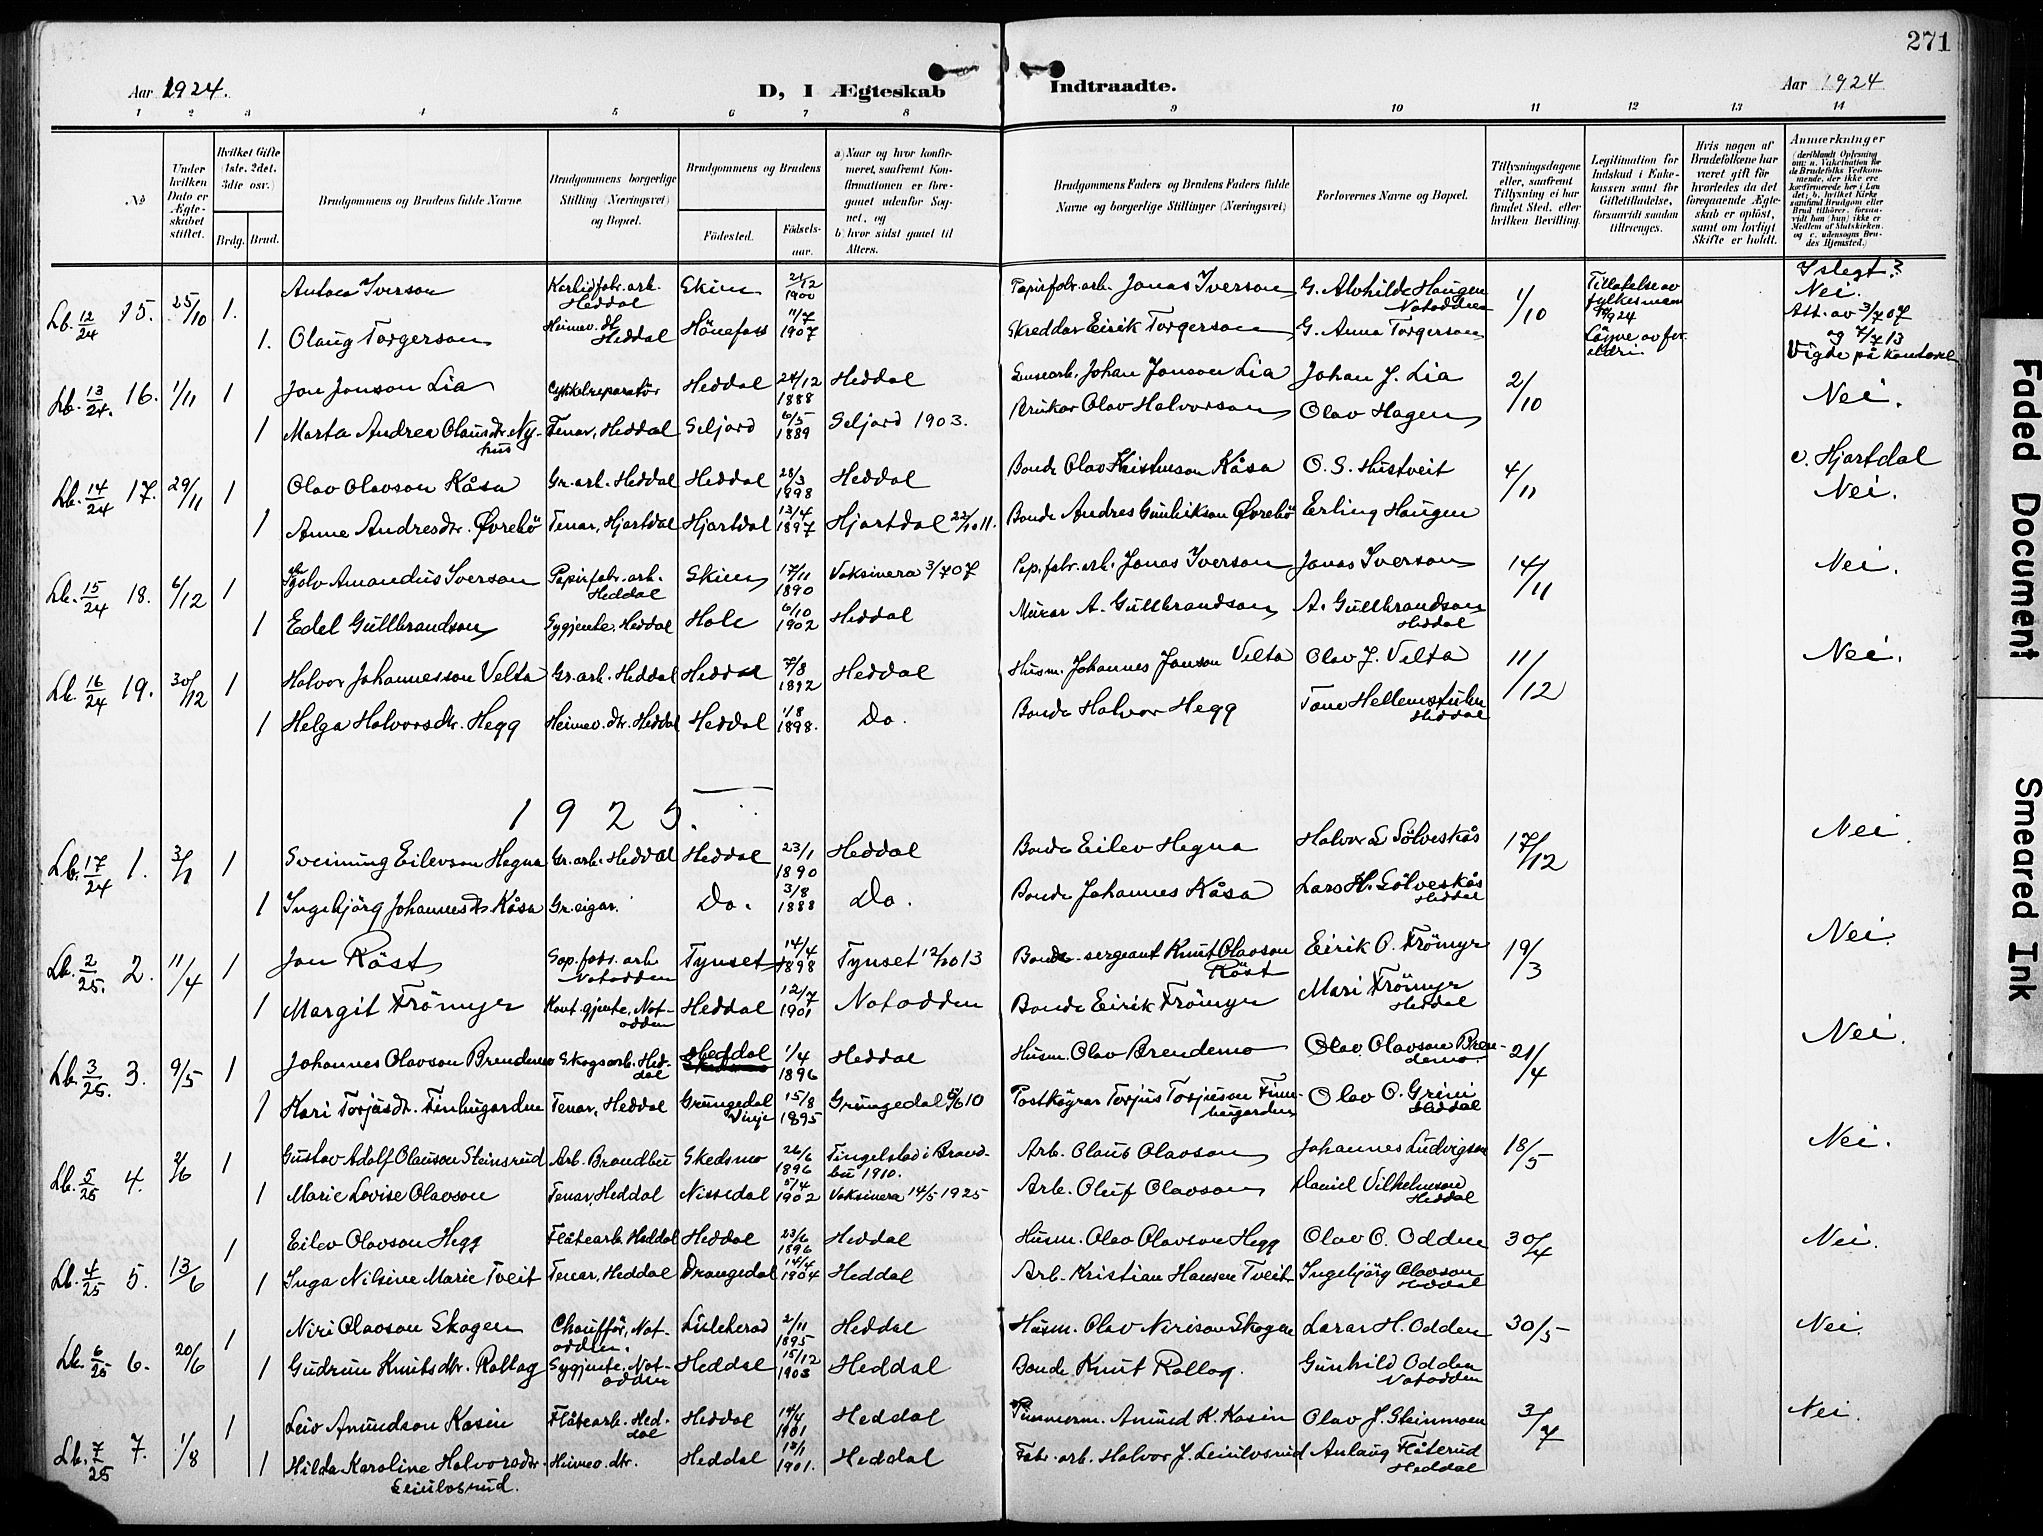 271
Aar 1924.
D, I Ægteskab
Indtraadte.
Aar 1924
1 2 3 4 5 6 7 8 9 10 11 12 13 14
No
Under hvilken Dato er Ægteskabet stiftet.
Hvilket Gifte (1ste, 2det, 3die osv.)
Brdg. Brud.
Brudgommens og Brudens fulde Navne
Brudgommens borgerlige Stilling (Næringsvei) og Bopæl.
Brudgommens og Brudens
Fødested.
Fødselsaar.
a) Naar og hvor konfirmeret, saafremt Konfirmationen er foregaaet udenfor Sognet, og
b) hvor sidst gaaet til Alters.
Brudgommens Faders og Brudens Faders fulde Navne og borgerlige Stillinger (Næringsvei)
Forlovernes Navne og Bopæl.
Tillysningsdagene eller, saafremt Tillysning ei har fundet Sted, efter hvilken Bevilling.
Legitimation for Indskud i Enkekassen samt for Giftetilladelse, forsaavidt saadan tiltrænges.
Hvis nogen af Brudefolkene har været gift før hvorledes da det foregaaende Ægteskab er opløst, samt om lovligt Skifte er holdt.
Anmærkninger
Lb. 12/24 15. 25/10 1. Anton Iverson Karbidfabr.arb. Heddal Skien 21/12 1900 Papirfabr.arb. Jonas Iverson G. Alvhilde Haugen Notodden 1/10 Tillatelse av fylkesmann Islegt? Nei.
1. Olaug Torgerson Heimev. dt. Heddal Hönefoss 11/7 1907 Skreddar Eirik Torgerson G. Anna Torgerson Löyve av foreldri Att. av 3/7 07 og 7/7 13 Vigde på kontoret
Lb. 13/24. 16. 1/11 1 Jon Jonson Lia Cykkelreparatör Heddal 24/12 1888 Heddal Johan Jonson Lia Johan J. Lia 2/10 Nei.
1 Marta Andrea Olausdtr Nyhus Tenar, Heddal Seljord 6/5 1889 Seljord 1903. Brukar Olav Halvorson Olav Hagen
Lb. 14/24 17. 29/11 1 Olav Olavson Kåsa Gr.arb. Heddal Heddal 28/3 1898 Heddal Bonde Olav Kristenson Kåsa O. S. Hustveit 4/11 c. Hjartdal Nei.
1 Anne Andresdtr. Øvrebö Tenar, Hjartdal Hjartdal 13/4 1897 Hjartdal 22/10 11. Bonde Andres Gunleikson Øvrebö Erling Haugen
Lb. 15/24 18. 6/12 1 Amandus Iverson Papirfabr.arb. Heddal Skien 17/11 1890 Vaksinera 3/7 07 Pap.fabr.arb. Jonas Iverson Jonas Iverson 14/11 Nei.
1 Edel Gullbrandson Sygjente, Heddal Hole 6/10 1902 Heddal Murar A. Gullbrandson A. Gullbrandson Heddal
Lb. 16/24 19. 30/12 1 Halvor Johannesson Velta Gr.arb. Heddal Heddal 7/8 1892 Heddal Husm. Johannes Jonson Velta Olav J. Velta 11/12 Nei.
1 Helga Halvorsdtr. Hegg Heimev. dtr. Heddal Heddal 1/8 1898. Do. Bonde Halvor Hegg Tone Hellemstulen Heddal
1925.
Lb. 17/24 1. 3/1 1 Sveinung Eilevson Hegna Gr.arb. Heddal Heddal 23/1 1890 Heddal Bonde Eilev Hegna Halvor L Sölveskås 17/12 Nei.
1 Ingebjörg Johannesdtr. Kåsa Gr.eigar. Do. 3/8 1888 Do. Bonde Johannes Kåsa Lars H. Sölveskås Heddal
Lb. 2/25. 2. 11/4 1 Jon Röst Sap.fabr. arb Notodden Tynset 14/4 1898 Tynset 12/10 13 Bonde-sergeant Knut Olavson Röst Eirik O. Frömyr 19/3 Nei.
1 Margit Frömyr Kont.gjente, Notodden Heddal 12/7 1901 Notodden Bonde Eirik Frömyr Mari Frömyr Heddal
Lb. 3/25. 3. 9/5 1 Johannes Olavson Brendemo Skogsarb. Heddal Heddal 1/4 1896 Heddal Husm. Olav Brendemo Olav Olavson Brendemo 21/4 Nei.
1 Kari Torjusdtr. Finhugarden Tenar, Heddal Grungedal Vinje 15/8 1895 Grungedal 10 Postköyrar Torjus Torjusson Finnhugarden Olav O. Grini Heddal
Lb. 5/25 4. 2/6 1 Gustav Adolf Olauson Steinsrud Arb. Brandbu Skedsmo 26/6 1896 Tingelstad i Brandbu 1910. Arb. Olaus Olavson Johannes Ludvigson 18/5 Nei.
1 Marie Lovise Olavson Tenar, Heddal Nissedal 5/4 1902 Vaksinera 14/5 1925 Arb. Oluf Olavson Daniel Vilhelmson Heddal
Lb. 4/25 5. 13/6 1 Eilev Olavson Hegg Flåtearb. Heddal Heddal 23/6 1896 Heddal Husm. Olav Olavson Hegg Olav O. Odden 30/4 Nei.
1 Inga Nilsine Marie Tveit Tenar, Heddal Drangedal 14/4 1904 Heddal Arb. Kristian Hansen Tveit Ingebjörg Olavson Heddal
Lb. 6/25 6. 20/6 1 Niri Olavson Skogen Chaufför, Notodden. Lilleherad 2/11 1895 Heddal Husm. Olav Nirison Skogen Larar H. Odden 30/5 Nei.
1 Gudrun Knutsdtr. Rollag Sygjente, Notodden Heddal 15/12 1903 Heddal Bonde Knut Rollag. Gunhild Odden Notodden
Lb. 7/25 7. 1/8 1 Leiv Amundson Kasin Flåtearb. Heddal Heddal 14/4 1901 Heddal Tummerm. Amund K. Kasin Olav J. Steinmoen 3/7 Nei.
1 Hilda Karoline Halvorsdtr. Leiulvsrud. Heimev. dtr. Heddal 18/1 1901. Heddal Fabr.arb. Halvor J. Leiulvsrud Anlaug Flåterud Heddal
Faded Document
Smeared Ink